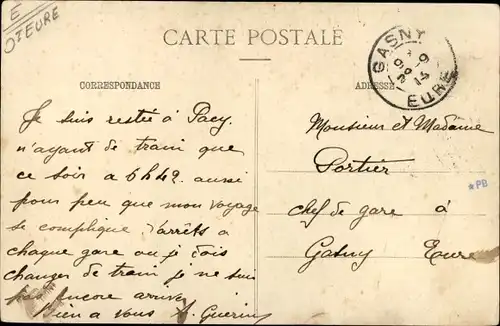 E
07 EURE
CARTE POSTALE
GASNY
EURE
CORRESPONDANCE
ADRESSE
Je suis restée à Pacy.
n'ayant de train que
ce soir a 6h42. aussi
pour peu que mon voyage
se complique d'arrêts a
chaque gare ou je dois
changer de train je ne suis
pas encore arrivé
Bien a vous A. Guerin
Monsieur et Madame
Portier
chef de gare à
Gasny Eure
*PB